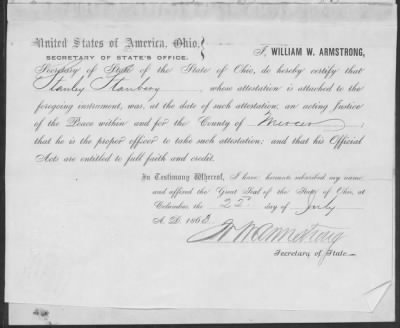 United States of America, Ohio,
SECRETARY OF STATE'S OFFICE.
I, WILLIAM W. ARMSTRONG,
Secretary of State of the State of Ohio, do hereby certify that
Stanly Stanbery whose attestation is attached to the
foregoing instrument, was, at the date of such attestation, an acting Justice
of the Peace within and for the County of Mercer;
that he is the proper officer to take such attestation; and that his Official
Acts are entitled to full faith and credit.
In Testimony Whereof, I have hereunto subscribed my name
and affixed the Great Seal of the State of Ohio, at
Columbus, the 25" day of July
A. D. 1863.
W W Armstrong
Secretary of State.